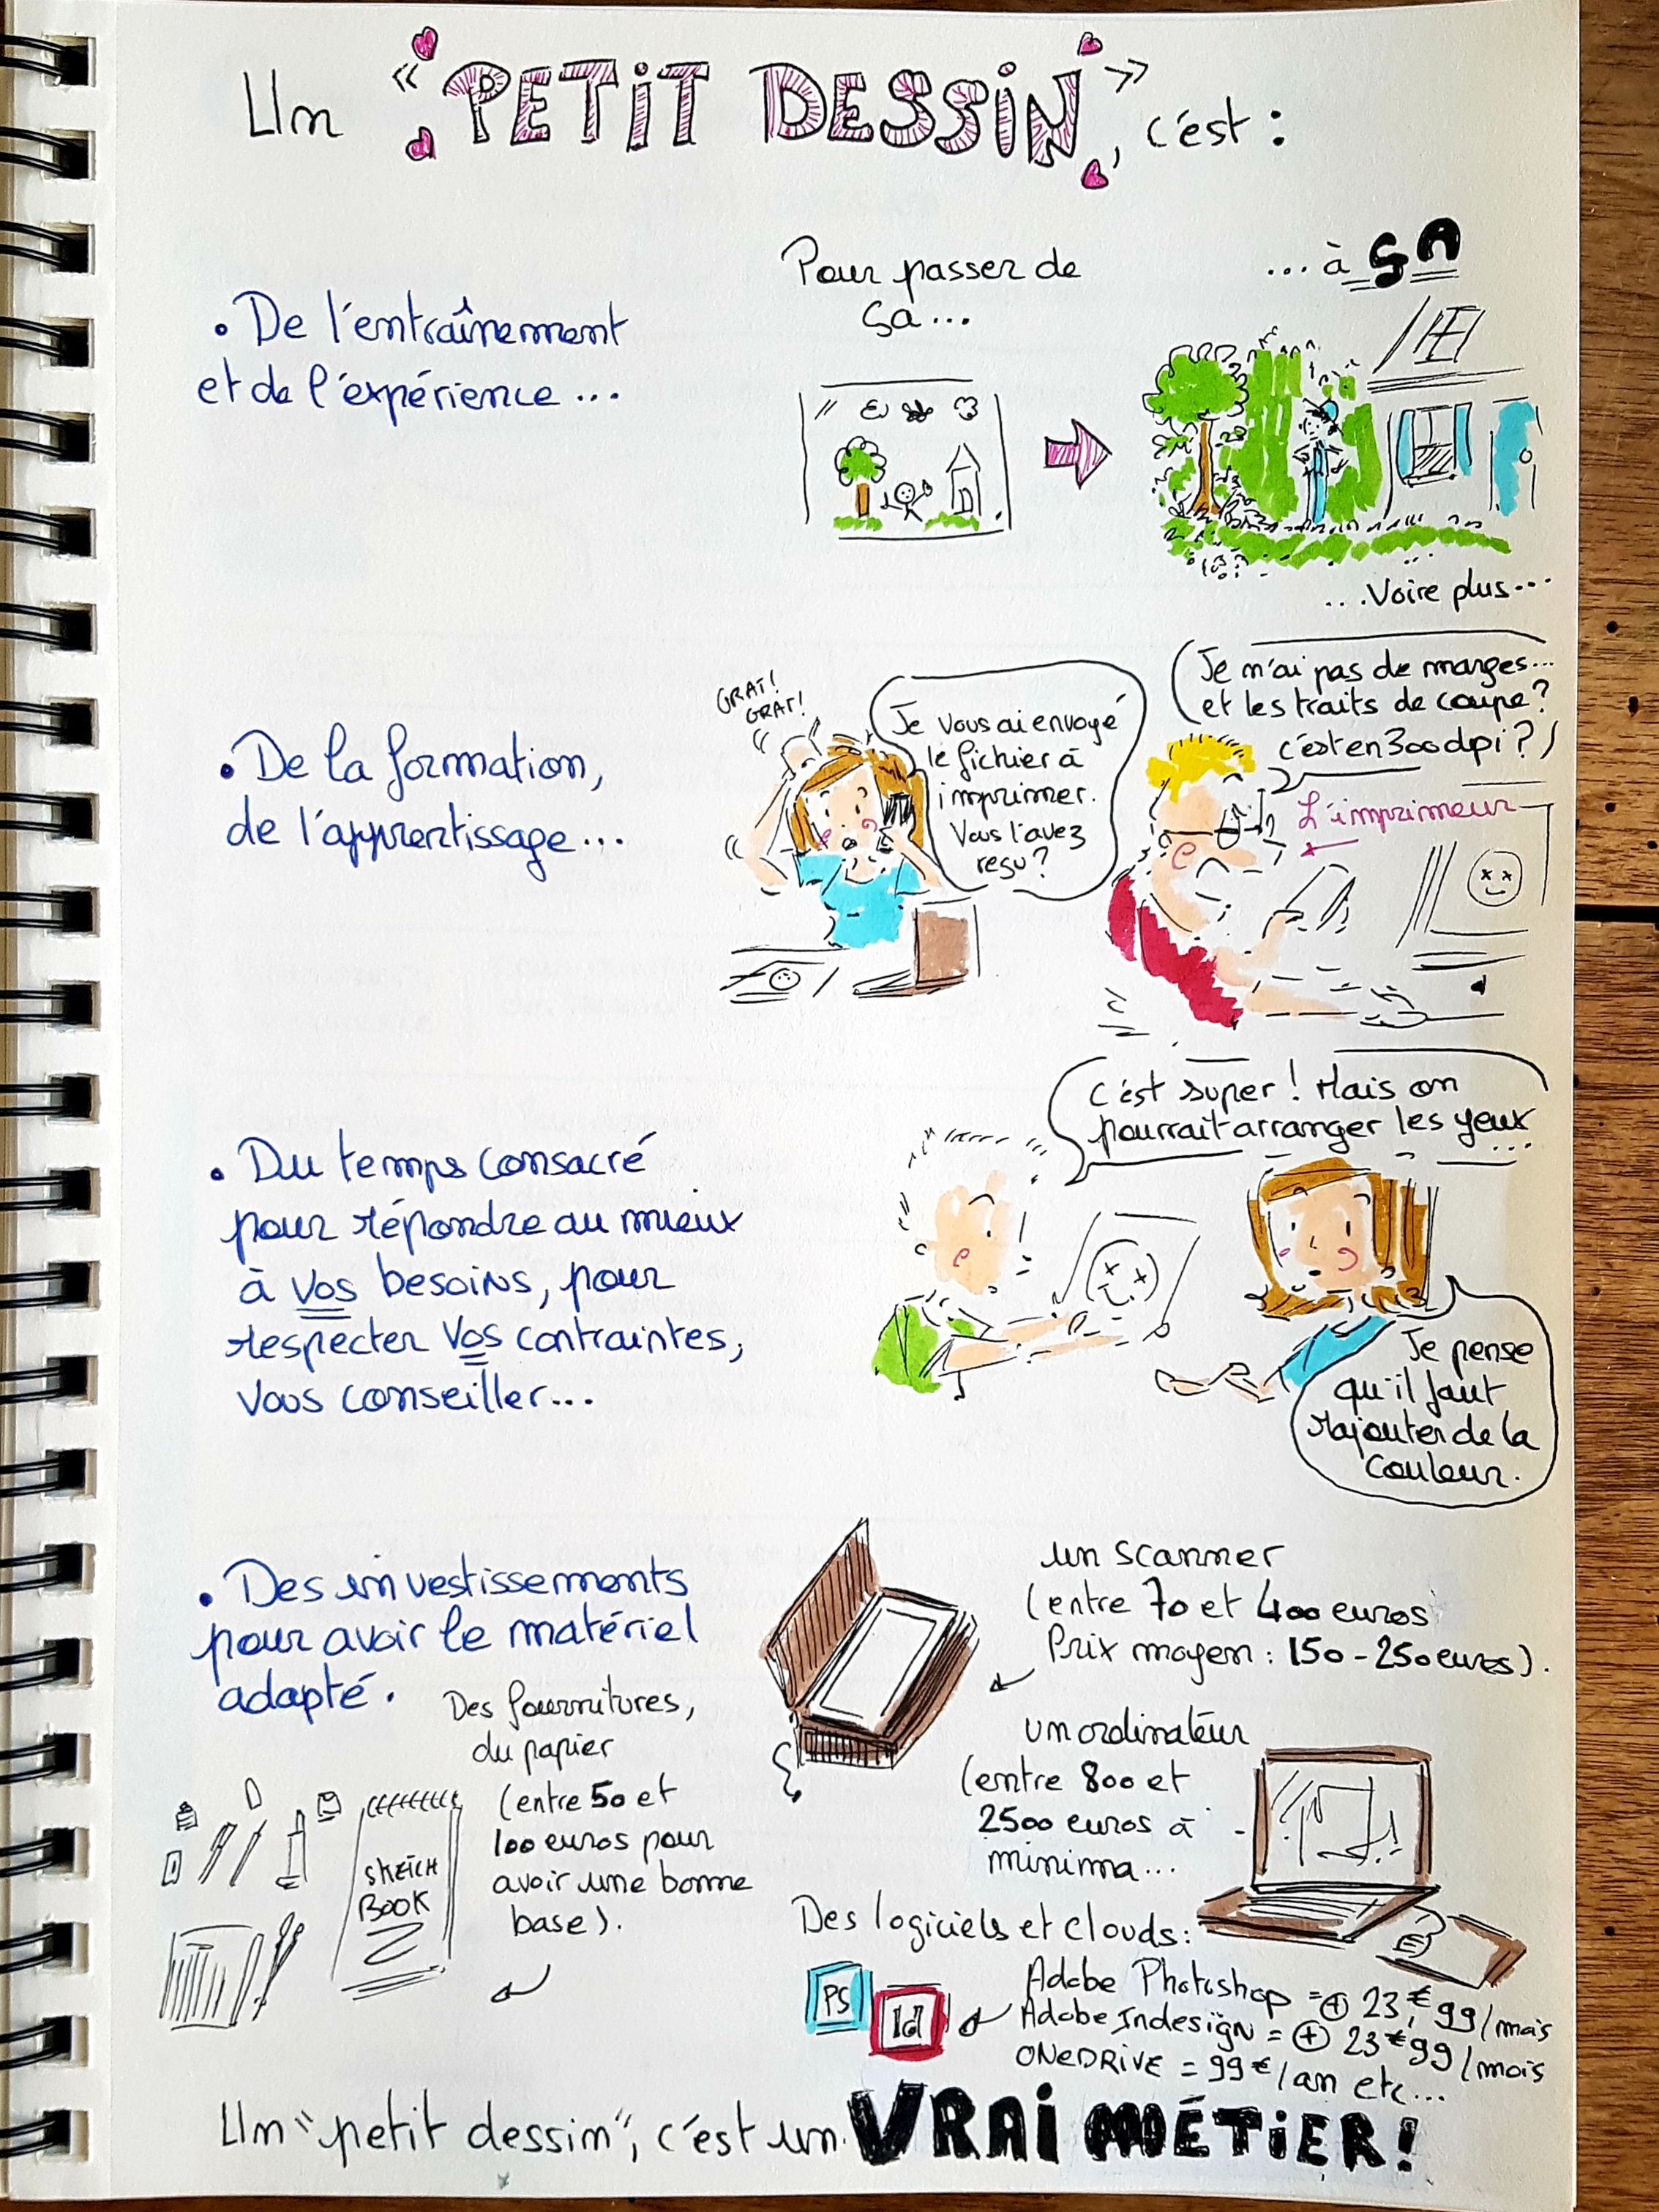 Un « PETIT DESSIN », c'est :
• De l'entraînement
et de l'expérience...
Pour passer de
ça...
... à ÇA
...Voire plus...
• De la formation,
de l'apprentissage...
GRAT!
GRAT!
Je vous ai envoyé
le fichier à
imprimer.
Vous l'avez
reçu?
Je n'ai pas de marges...
et les traits de coupe?
c'est en 300 dpi?
L'imprimeur
• Du temps consacré
pour répondre au mieux
à vos besoins, pour
respecter vos contraintes,
vous conseiller...
C'est super! Mais on
pourrait arranger les yeux
...
Je pense
qu'il faut
rajouter de la
couleur.
• Des investissements
pour avoir le matériel
adapté.
Des fournitures,
du papier
(entre 50 et
100 euros pour
avoir une bonne
base).
SKETCH
BOOK
un scanner
(entre 70 et 400 euros
Prix moyen : 150 - 250 euros).
un ordinateur
(entre 800 et
2500 euros à
minima...
Des logiciels et clouds:
PS
Id
Adobe Photoshop = + 23,€99/mois
Adobe Indesign = + 23€99/mois
ONEDRIVE = 99€/an etc...
Un "petit dessin", c'est un VRAI MÉTIER!